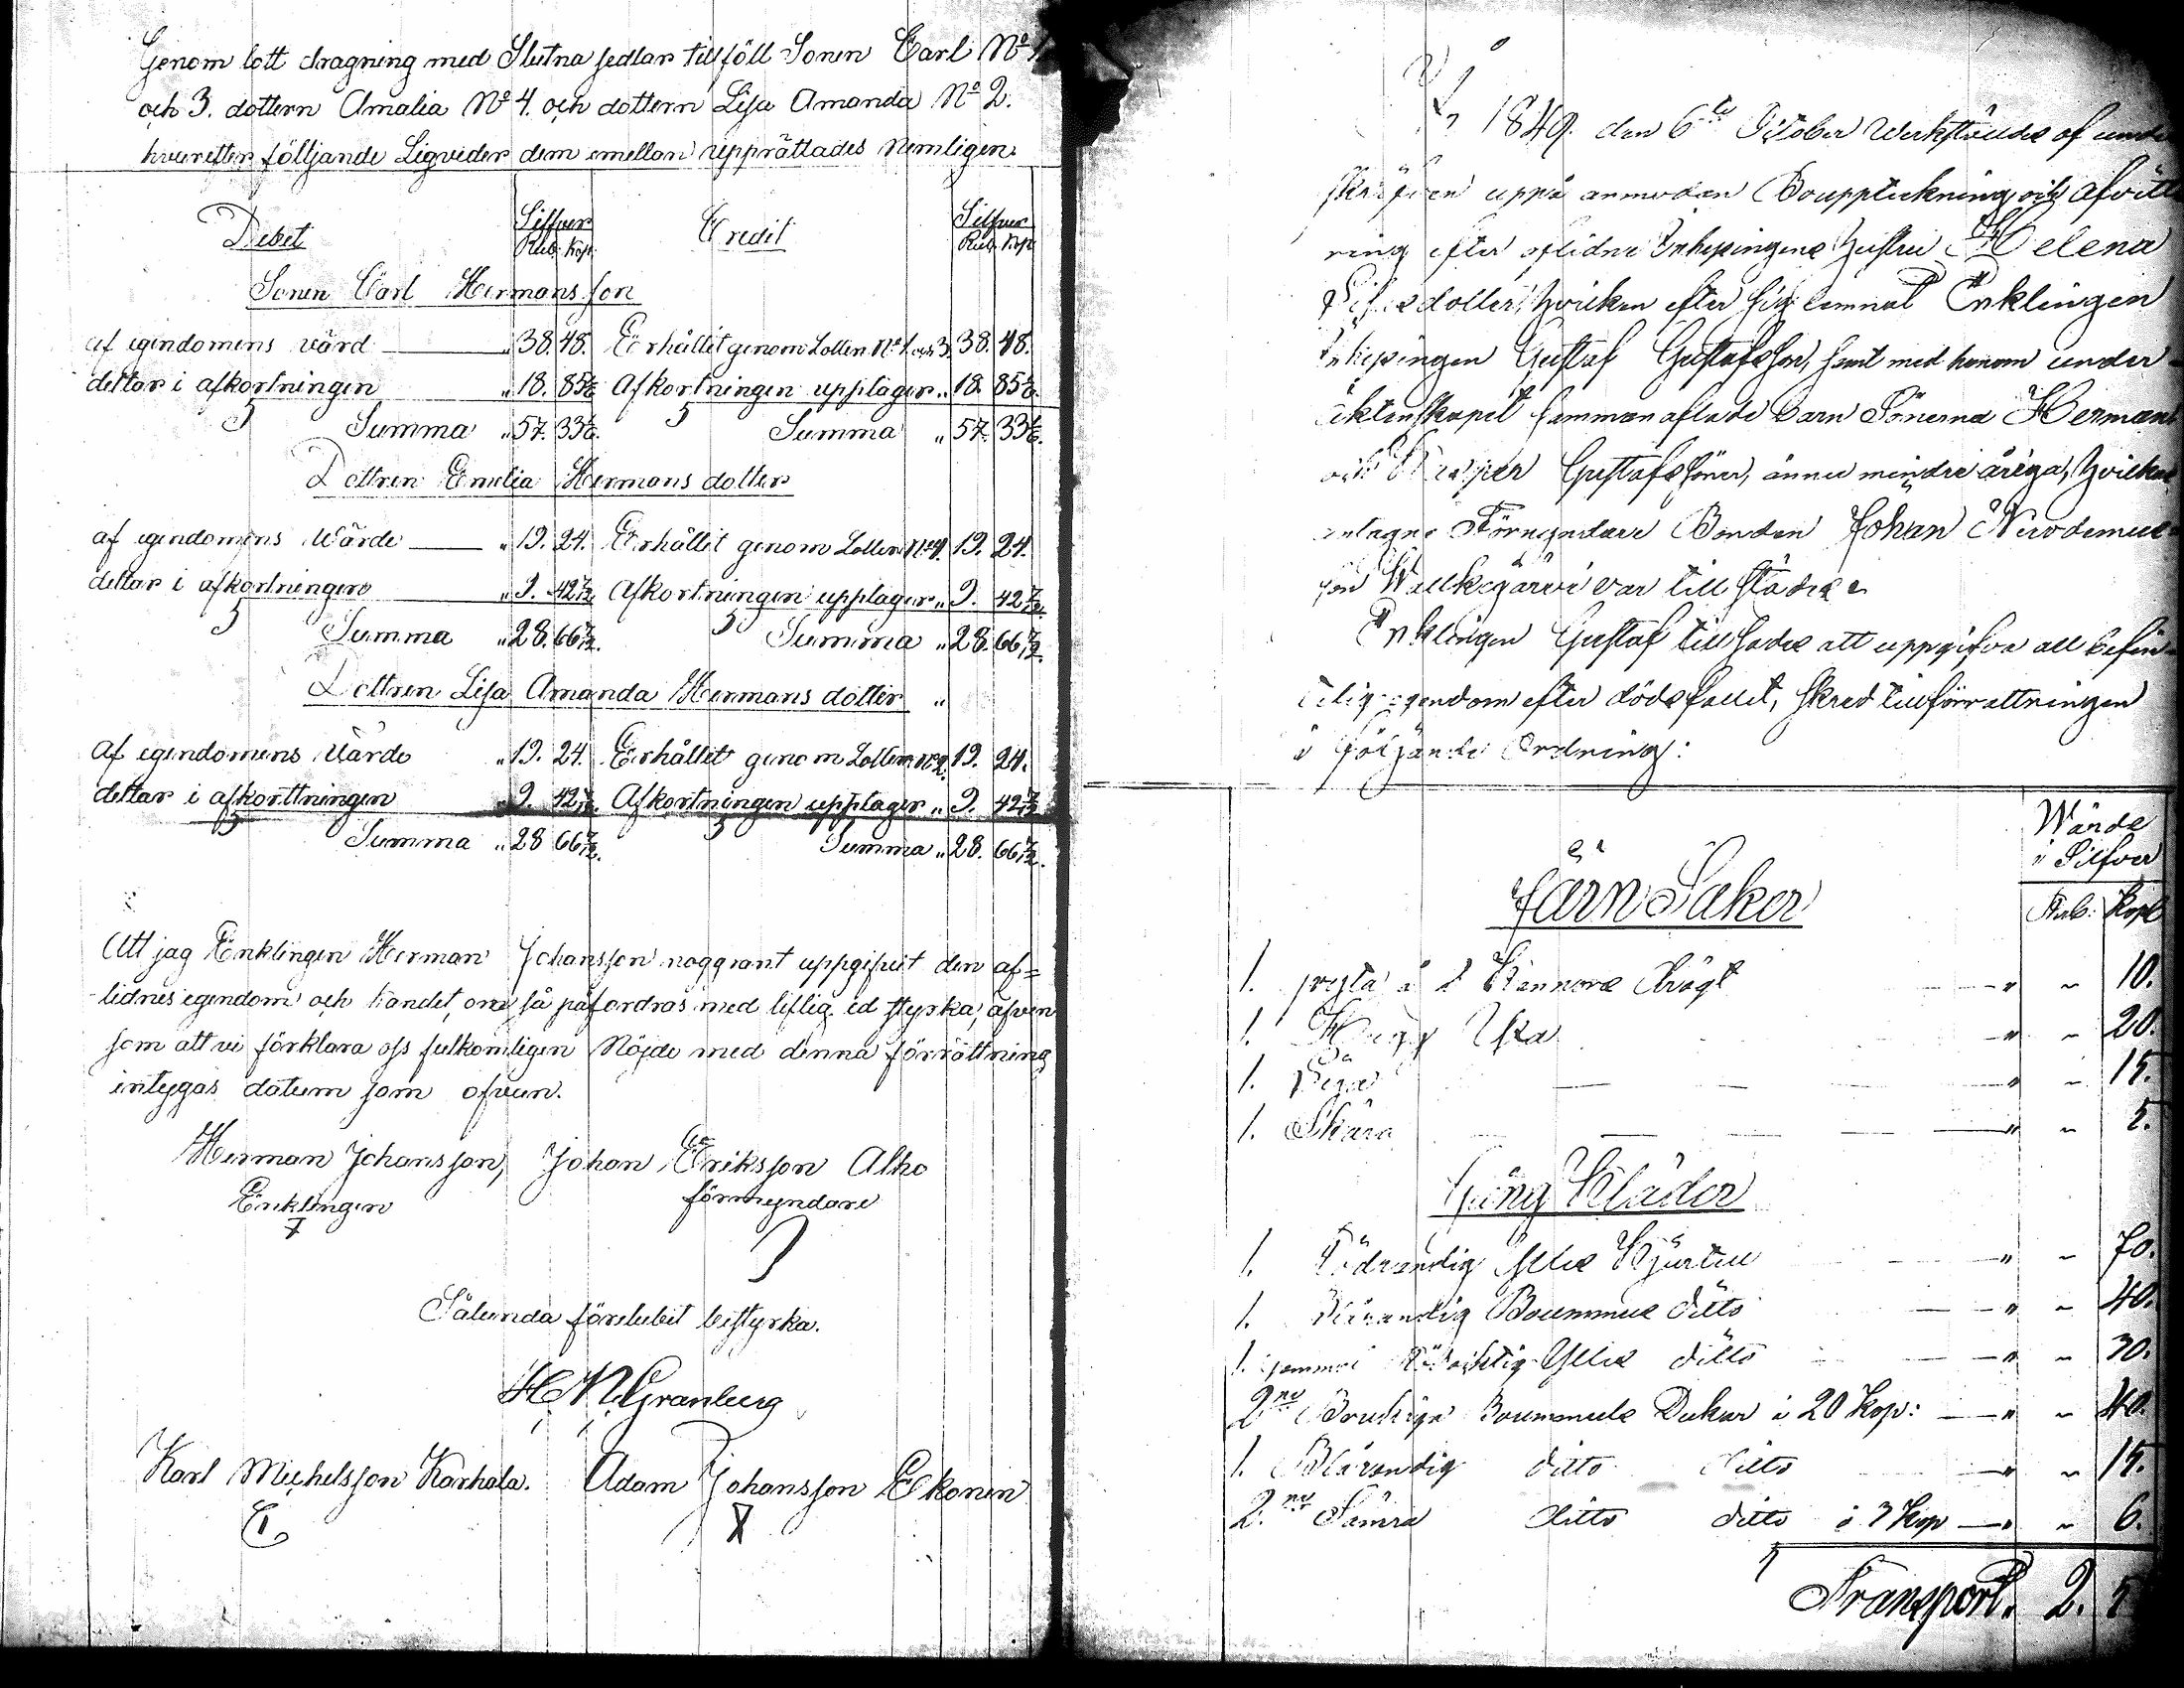 Genom lott dragning med Slutna sedlar tillföll Sonen Carl No 1.
och 3. dottern Amalia No 4. och dottern Lisa Amanda No 2.
hvarefter följjande Liqvider dem emellan upprättades nemligen
Debet Silfver Rub. Kop. Credit Silfver Rub. Kop.
Sonen Carl Hermansson
af egendomens värd " 38. 48. Erhållit genom Lotten No 1. och 3. 38. 48.
deltar i afkortningen " 18. 85 5/6 Afkortningen upptager " 18. 85 5/6.
Summa " 57. 33 5/6. Summa " 57. 33 5/6.
Dottren Emelia Hermans dotter
af egendomens Wärde " 19. 24. Erhållit genom Lotten No 4. 19. 24.
deltar i afkortningen " 9. 42 Afkortningen upptager " 9. 42
Summa " 28. 66 Summa " 28. 66
Dottren Lisa Amanda Hermans dotter "
Af egendomens Värde " 19. 24. Erhållit genom Lotten No 2. 19. 24.
deltar i afkorttningen " 9. 42 Afkortningen upptager " 9. 42
Summa " 28 66 Summa " 28. 66
Att jag Enklingen Herman Johansson noggrant uppgifvit den af=
lidnes egendom och kandet, om så påfordras med liflig ed styrka, äfven
som att vi förklara oss fulkomligen Nöjde med denna förrättning
intygas datum som ofvan.
Herman Johansson, Johan Eriksson Alho
Enklingen förmyndare
Sålunda förelubit bestyrka.
H N Granberg
Karl Michelsson Karhala. Adam Johansson Ekonen
1849. den 6te October Werkstäldes af unde
uppå anmodan Bouppteckning och afvitt
ring efter aflidne Inhysingens hustru Helena
dotter, hvilken efter sig lemnat Enklingen
Inhysingen Gustaf Gustafsson, samt med honom under
äktenskapet samman aflade Barn Sönerna Herman
och Gustafs Söner, ännu mindre åriga, hvilkas
antagne Förmyndare Bonden Johan Nicodemus
son var till städes
Enklingen Gustaf tillsades att uppgifva all befin
telig egendom efter dödsfallet, skred till förrättningen
i följjande Ordning:
Wärde
i Silfver
Rub: Kop
Järn Saker
1. å 2 Kannors " ~ 10.
1. Yxa " ~ 20.
1. " ~ 15.
1. Skära " ~ 5.
Gång Kläder
1. Rödrandig Ylle Kjurtel " ~ 70.
1. Blårandig Boummuls ditto " ~ 40.
1. Ylle ditto " ~ 30.
2ne Boummuls Dukar à 20 Kop: " ~ 40.
1. Blårandig ditto ditto " ~ 15.
2.ne Sämra ditto ditto à 3 Kop " ~ 6.
Transport. 2. 5